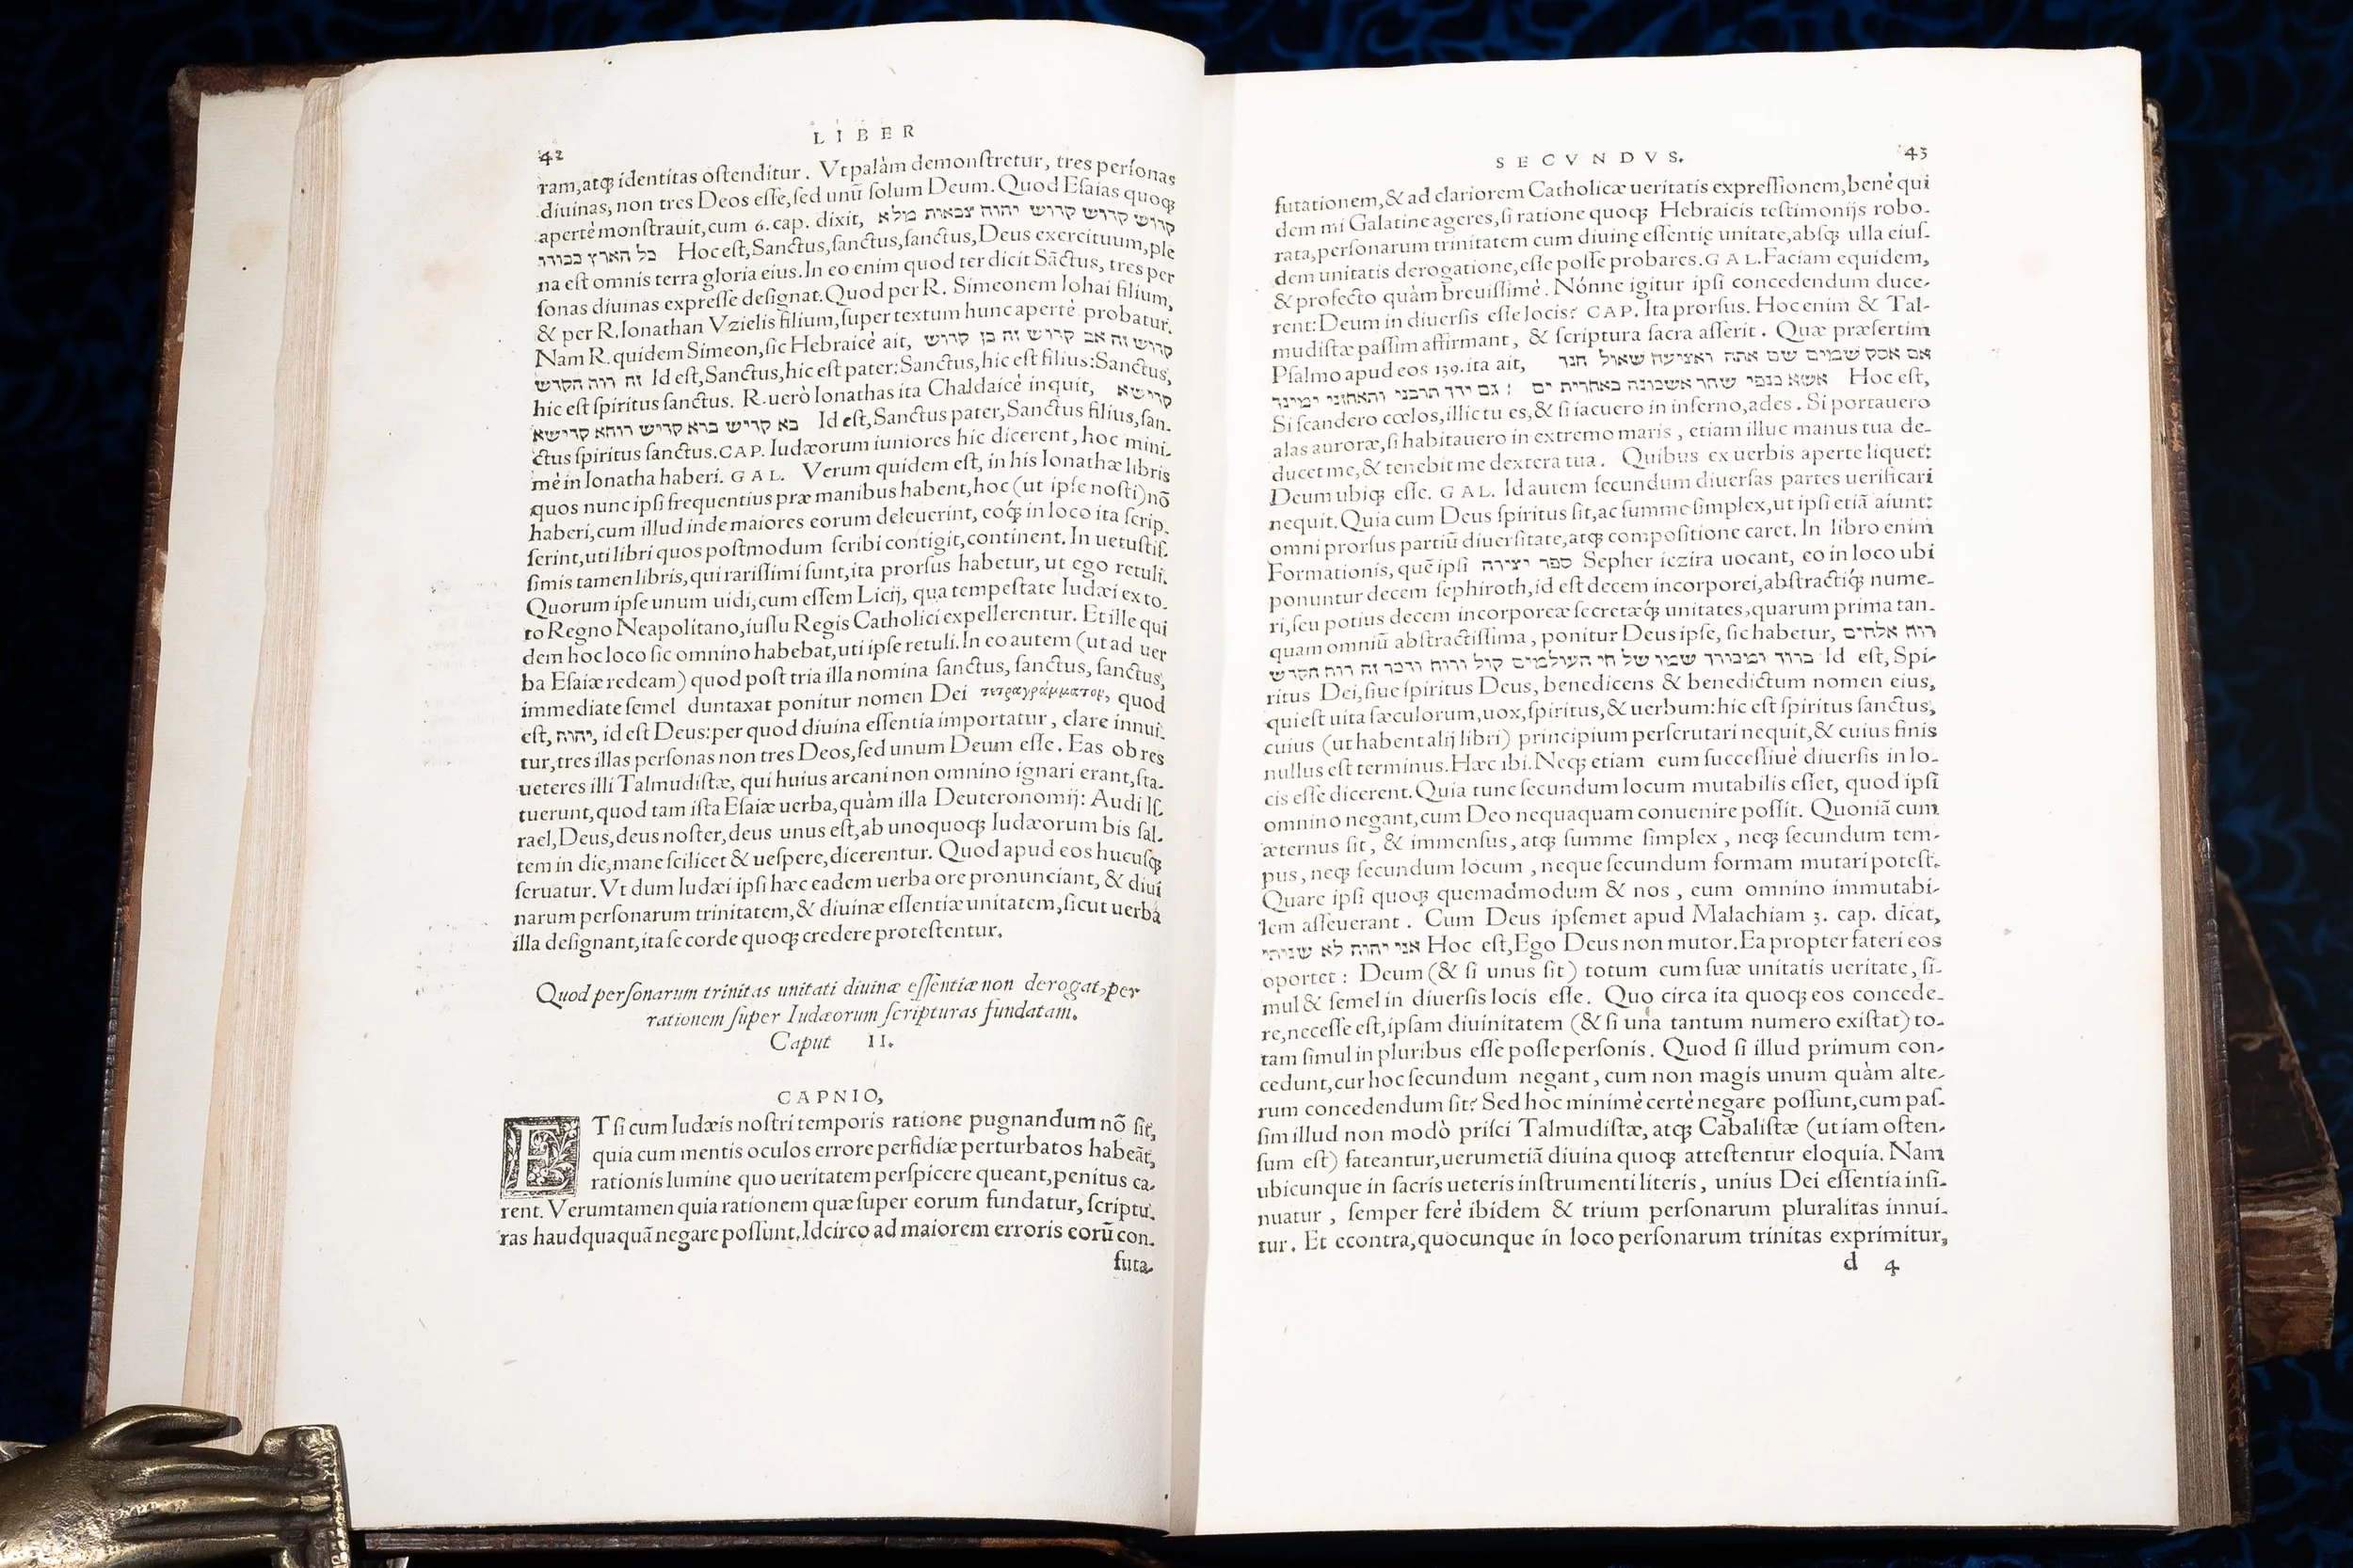 42
LIBER
ram,atq; identitas ostenditur. Vt palàm demonstretur, tres personas
diuinas, non tres Deos esse, sed unũ solum Deum. Quod Esaias quoq;
apertè monstrauit, cum 6. cap. dixit, קדוש קדוש קדוש יהוה צבאות מלא
כל הארץ כבודו Hoc est, Sanctus, sanctus, sanctus, Deus exercituum, ple
na est omnis terra gloria eius. In eo enim quod ter dicit Sãctus, tres per
sonas diuinas expresse designat. Quod per R. Simeonem Iohai filium,
& per R. Ionathan Vzielis filium, super textum hunc apertè probatur.
Nam R. quidem Simeon, sic Hebraicè ait, קדוש זה אב קדוש זה בן קדוש
זה רוח הקדש Id est, Sanctus, hic est pater: Sanctus, hic est filius: Sanctus,
hic est spiritus sanctus. R. uerò Ionathas ita Chaldaicè inquit, קדישא
בא קדיש ברא קדיש רוחא קדישא Id est, Sanctus pater, Sanctus filius, san-
ctus spiritus sanctus. CAP. Iudæorum iuniores hic dicerent, hoc mini-
mè in Ionatha haberi. GAL. Verum quidem est, in his Ionathæ libris
quos nunc ipsi frequentius præ manibus habent, hoc (ut ipse nosti) nõ
haberi, cum illud inde maiores eorum deleuerint, eoq́; in loco ita scrip-
serint, uti libri quos postmodum scribi contigit, continent. In uetustis-
simis tamen libris, qui rarissimi sunt, ita prorsus habetur, ut ego retuli.
Quorum ipse unum uidi, cum essem Licij, qua tempestate Iudæi ex to-
to Regno Neapolitano, iussu Regis Catholici expellerentur. Et ille qui
dem hoc loco sic omnino habebat, uti ipse retuli. In eo autem (ut ad uer
ba Esaiæ redeam) quod post tria illa nomina sanctus, sanctus, sanctus,
immediate semel duntaxat ponitur nomen Dei τετραγράμματον, quod
est, יהוה, id est Deus: per quod diuina essentia importatur, clare innui-
tur, tres illas personas non tres Deos, sed unum Deum esse. Eas ob res
ueteres illi Talmudistæ, qui huius arcani non omnino ignari erant, sta-
tuerunt, quod tam ista Esaiæ uerba, quàm illa Deuteronomij: Audi Is-
rael, Deus, deus noster, deus unus est, ab unoquoq; Iudæorum bis sal-
tem in die, mane scilicet & uespere, dicerentur. Quod apud eos hucusq;
seruatur. Vt dum Iudæi ipsi hæc eadem uerba ore pronunciant, & diui
narum personarum trinitatem, & diuinæ essentiæ unitatem, sicut uerba
illa designant, ita se corde quoq; credere protestentur.
Quod personarum trinitas unitati diuinæ essentiæ non derogat, per
rationem super Iudæorum scripturas fundatam.
Caput II.
CAPNIO,
ET si cum Iudæis nostri temporis ratione pugnandum nõ sit,
quia cum mentis oculos errore perfidiæ perturbatos habeãt,
rationis lumine quo ueritatem perspicere queant, penitus ca-
rent. Verumtamen quia rationem quæ super eorum fundatur, scriptu-
ras haudquaquã negare possunt. Idcirco ad maiorem erroris eorũ con-
futa-
SECVNDVS.
43
futationem, & ad clariorem Catholicæ ueritatis expressionem, benè qui
dem mi Galatine ageres, si ratione quoq; Hebraicis testimonijs robo-
rata, personarum trinitatem cum diuinę essentię unitate, absq; ulla eius-
dem unitatis derogatione, esse posse probares. GAL. Faciam equidem,
& profecto quàm breuissimè. Nónne igitur ipsi concedendum duce-
rent: Deum in diuersis esse locis? CAP. Ita prorsus. Hoc enim & Tal-
mudistæ passim affirmant, & scriptura sacra asserit. Quæ præsertim
Psalmo apud eos 139. ita ait, אם אסק שמים שם אתה ואציעה שאול הנך
אשא כנפי שחר אשכונה באחרית ים : גם ידך תרבני והאחזני ימינך Hoc est,
Si scandero cœlos, illic tu es, & si iacuero in inferno, ades. Si portauero
alas auroræ, si habitauero in extremo maris, etiam illuc manus tua de-
ducet me, & tenebit me dextera tua. Quibus ex uerbis aperte liquet:
Deum ubiq; esse. GAL. Id autem secundum diuersas partes uerificari
nequit. Quia cum Deus spiritus sit, ac summe simplex, ut ipsi etiã aiunt:
omni prorsus partiũ diuersitate, atq; compositione caret. In libro enim
Formationis, quẽ ipsi ספר יצירה Sepher iezira uocant, eo in loco ubi
ponuntur decem sephiroth, id est decem incorporei, abstractiq́; nume-
ri, seu potius decem incorporeæ secretæq́; unitates, quarum prima tan-
quam omniũ abstractissima, ponitur Deus ipse, sic habetur, רוח אלהים
ברוך ומבורך שמו של חי העולמים קול ורוח ודבר זה רוח הקדש Id est, Spi-
ritus Dei, siue spiritus Deus, benedicens & benedictum nomen eius,
qui est uita sæculorum, uox, spiritus, & uerbum: hic est spiritus sanctus,
cuius (ut habent alij libri) principium perscrutari nequit, & cuius finis
nullus est terminus. Hæc ibi. Neq; etiam eum successiuè diuersis in lo-
cis esse dicerent. Quia tunc secundum locum mutabilis esset, quod ipsi
omnino negant, cum Deo nequaquam conuenire possit. Quoniã cum
æternus sit, & immensus, atq; summe simplex, neq; secundum tem-
pus, neq; secundum locum, neque secundum formam mutari potest.
Quare ipsi quoq; quemadmodum & nos, eum omnino immutabi-
lem asseuerant. Cum Deus ipsemet apud Malachiam 3. cap. dicat,
אני יהוה לא שניתי Hoc est, Ego Deus non mutor. Ea propter fateri eos
oportet: Deum (& si unus sit) totum cum suæ unitatis ueritate, si-
mul & semel in diuersis locis esse. Quo circa ita quoq; eos concede-
re, necesse est, ipsam diuinitatem (& si una tantum numero existat) to-
tam simul in pluribus esse posse personis. Quod si illud primum con-
cedunt, cur hoc secundum negant, cum non magis unum quàm alte-
rum concedendum sit? Sed hoc minimè certè negare possunt, cum pas-
sim illud non modò prisci Talmudistæ, atq; Cabalistæ (ut iam osten-
sum est) fateantur, uerumetiã diuina quoq; attestentur eloquia. Nam
ubicunque in sacris ueteris instrumenti literis, unius Dei essentia insi-
nuatur, semper ferè ibidem & trium personarum pluralitas innui-
tur. Et econtra, quocunque in loco personarum trinitas exprimitur,
d 4